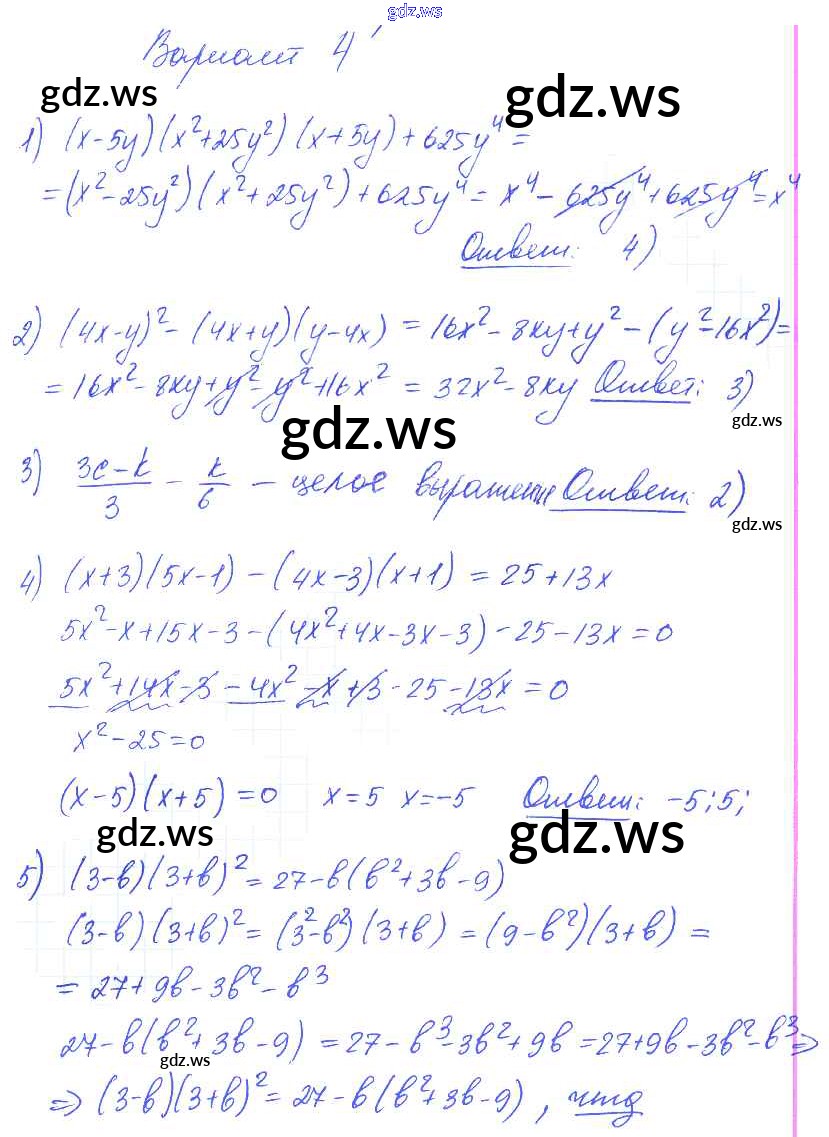 gdz.ws
Вариант 4
gdz.ws
gdz.ws
1) (x-5y)(x²+25y²)(x+5y)+625y⁴=
=(x²-25y²)(x²+25y²)+625y⁴=x⁴-625y⁴+625y⁴=x⁴
Ответ: 4)
2) (4x-y)²-(4x+y)(y-4x)=16x²-8xy+y²-(y²-16x²)=
=16x²-8xy+y²-y²+16x²=32x²-8xy Ответ: 3)
gdz.ws
gdz.ws
3) (3c-k)/3 - k/6 - целое выражение Ответ: 2)
gdz.ws
4) (x+3)(5x-1)-(4x-3)(x+1)=25+13x
5x²-x+15x-3-(4x²+4x-3x-3)-25-13x=0
5x²+14x-3-4x²-x+3-25-13x=0
x²-25=0
(x-5)(x+5)=0 x=5 x=-5 Ответ: -5; 5;
gdz.ws
gdz.ws
5) (3-b)(3+b)²=27-b(b²+3b-9)
(3-b)(3+b)²=(3²-b²)(3+b)=(9-b²)(3+b)=
=27+9b-3b²-b³
27-b(b²+3b-9)=27-b³-3b²+9b=27+9b-3b²-b³⇒
gdz.ws
⇒(3-b)(3+b)²=27-b(b²+3b-9), чтд